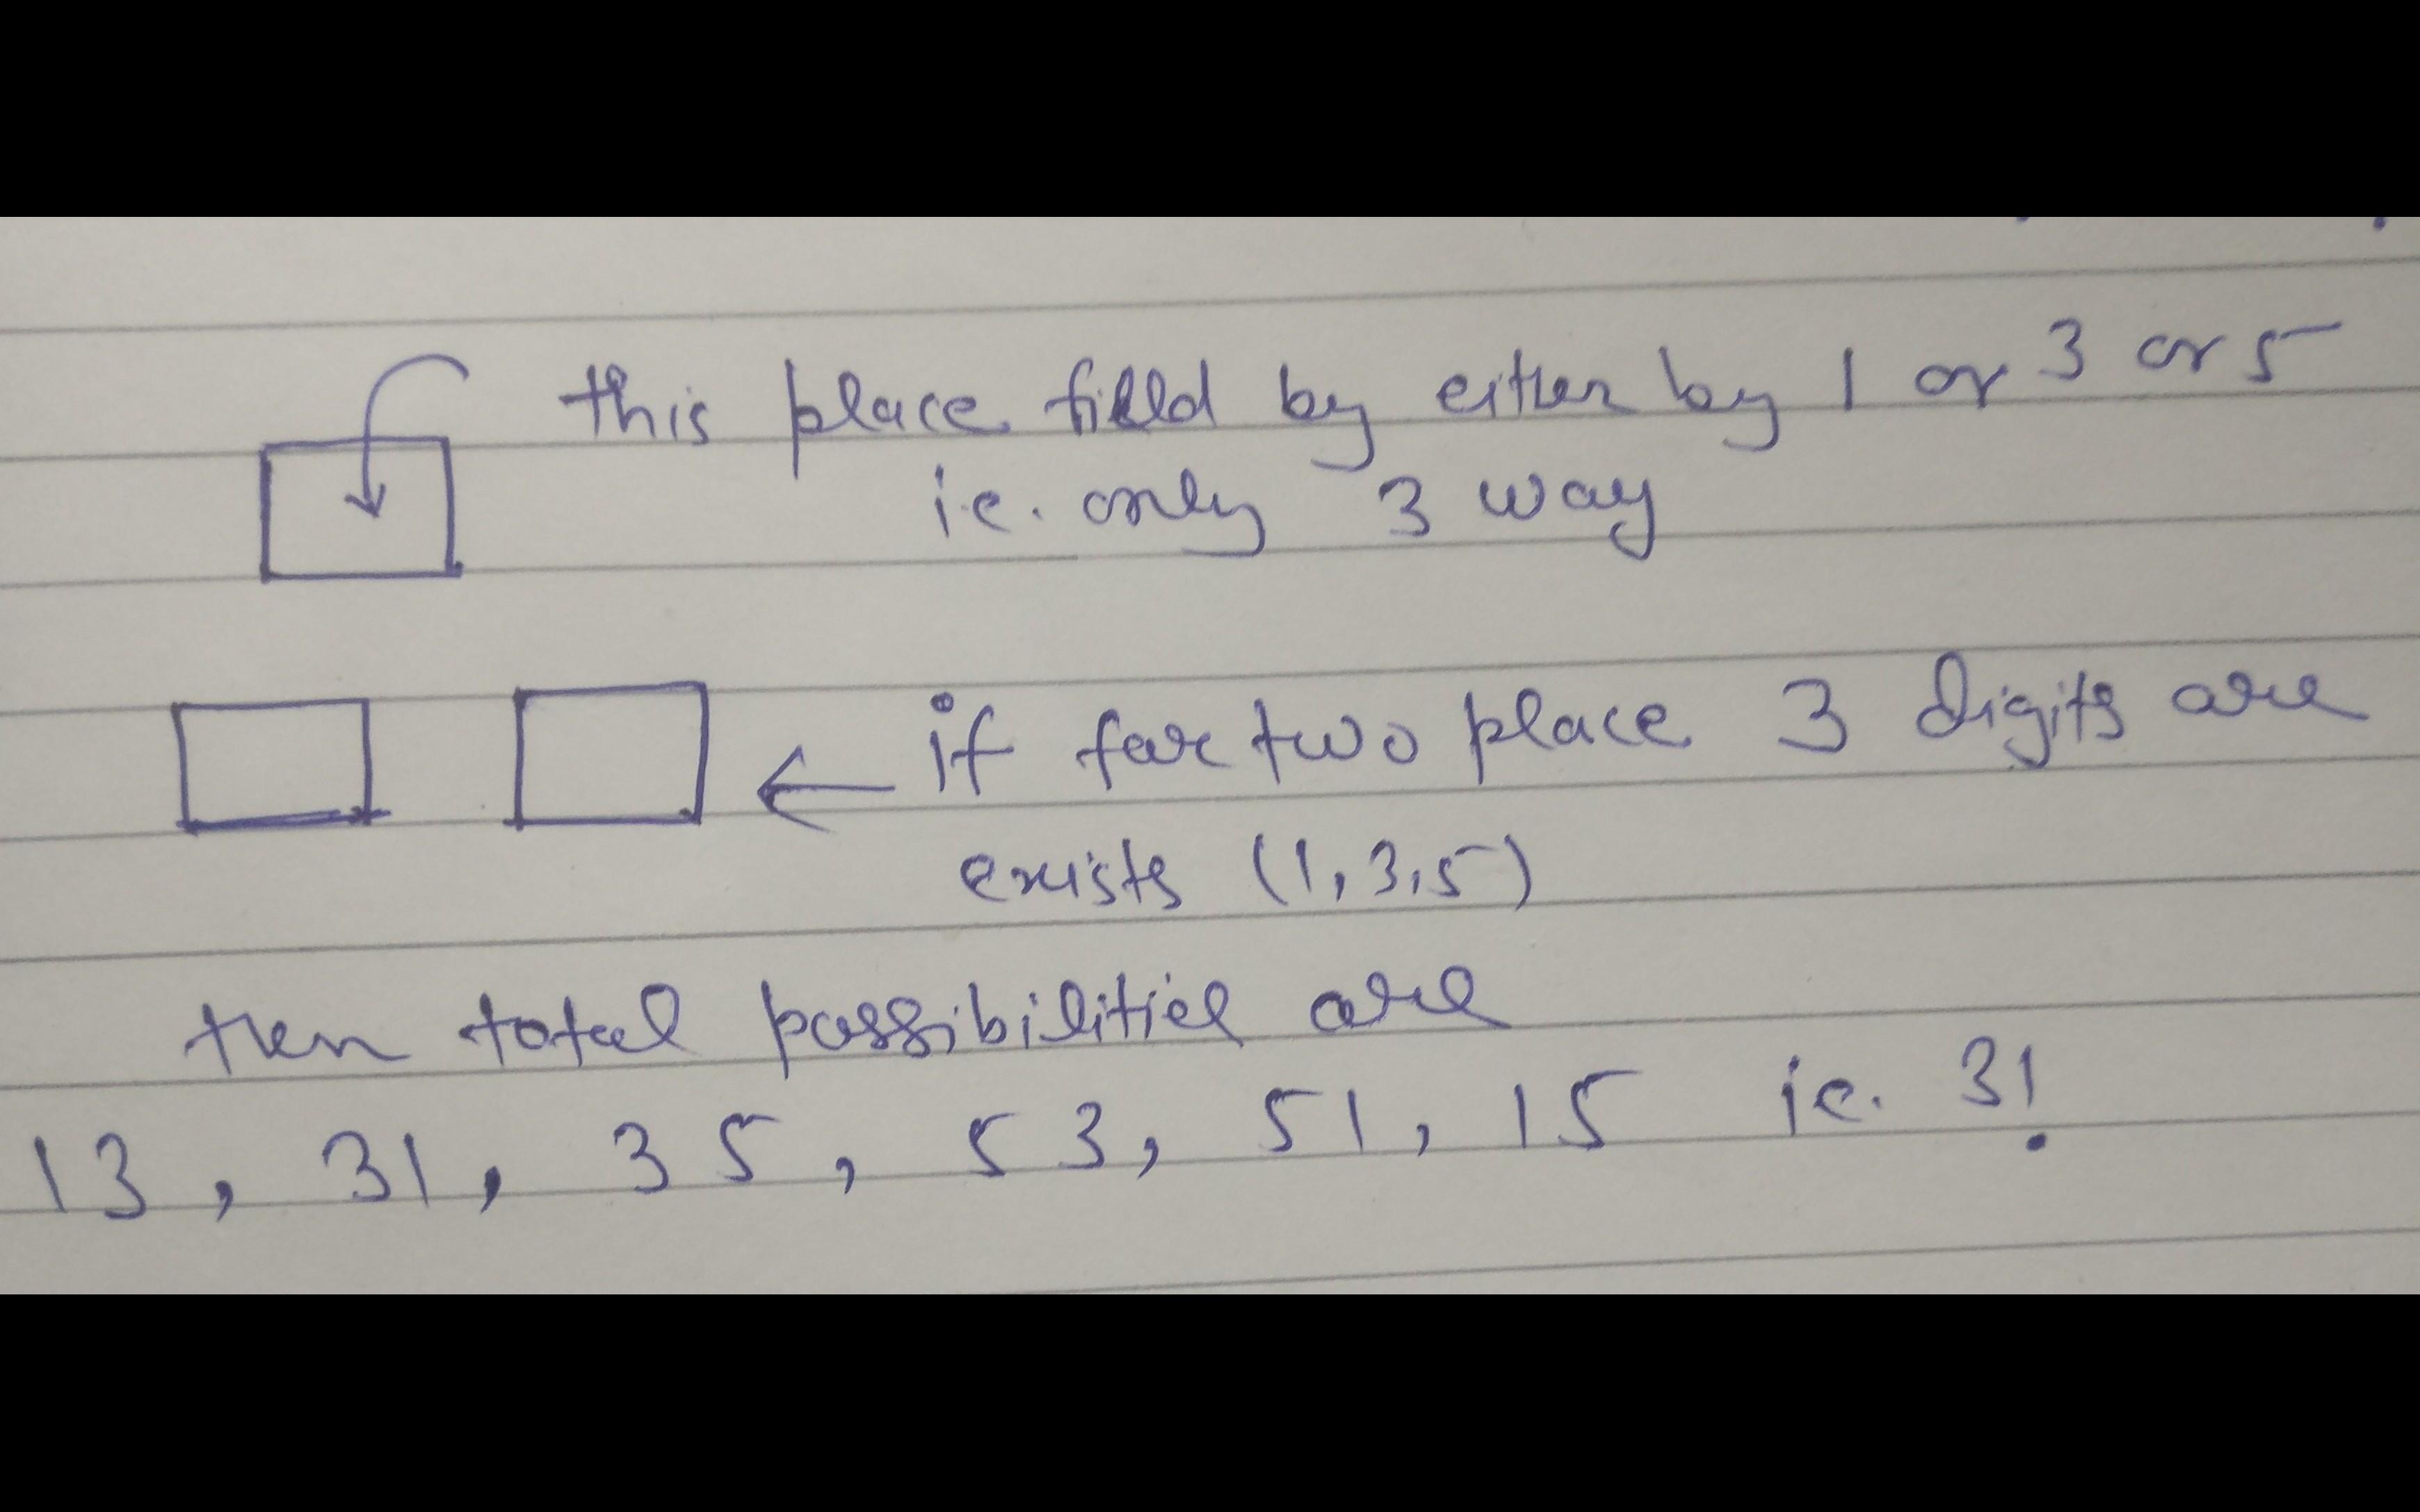 this place filld by either by 1 or 3 or 5
i.e. only 3 way
if for two place 3 digits are
exists (1,3,5)
then total possibilities are
13, 31, 35, 53, 51, 15 ie. 3!